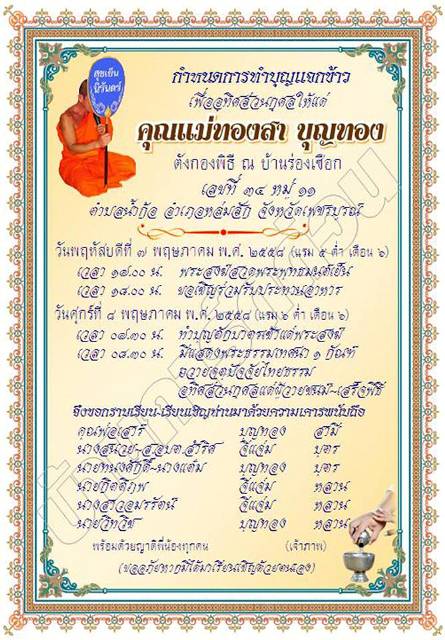 สุขเย็น
นิรันดร์
กำหนดการทำบุญแจกข้าว
เพื่ออุทิศส่วนกุศลให้แด่
คุณแม่ทองสา บุญทอง
ตั้งกองพิธี ณ บ้านร่องเชือก
เลขที่ ๓๔ หมู่ ๑๑
ตำบลน้ำก้อ อำเภอหล่มสัก จังหวัดเพชรบูรณ์
วันพฤหัสบดีที่ ๗ พฤษภาคม พ.ศ. ๒๕๕๘ (แรม ๕ ค่ำ เดือน ๖)
เวลา ๑๗.๐๐ น. พระสงฆ์สวดพระพุทธมนต์เย็น
เวลา ๑๘.๐๐ น. ขอเชิญร่วมรับประทานอาหาร
วันศุกร์ที่ ๘ พฤษภาคม พ.ศ. ๒๕๕๘ (แรม ๖ ค่ำ เดือน ๖)
เวลา ๐๗.๓๐ น. ทำบุญตักบาตรเช้าแด่พระสงฆ์
เวลา ๐๘.๓๐ น. มีแสดงพระธรรมเทศนา ๑ กัณฑ์
ถวายจตุปัจจัยไทยธรรม
อุทิศส่วนกุศลแด่ผู้วายชนม์-เสร็จพิธี
จึงขอกราบเรียน-เรียนเชิญท่านมาด้วยความเคารพนับถือ
คุณพ่อเสาร์ บุญทอง สามี
นางสนวย-ส.อ.บต.สำริศ จีแจ่ม บุตร
นายทนงศักดิ์-นางแต๋ม บุญทอง บุตร
นายกิตติภพ จีแจ่ม หลาน
นางสาวอมรรัตน์ จีแจ่ม หลาน
นายวิทวัช บุญทอง หลาน
พร้อมด้วยญาติพี่น้องทุกคน (เจ้าภาพ)
(ขออภัยหากมิได้มาเรียนเชิญด้วยตนเอง)